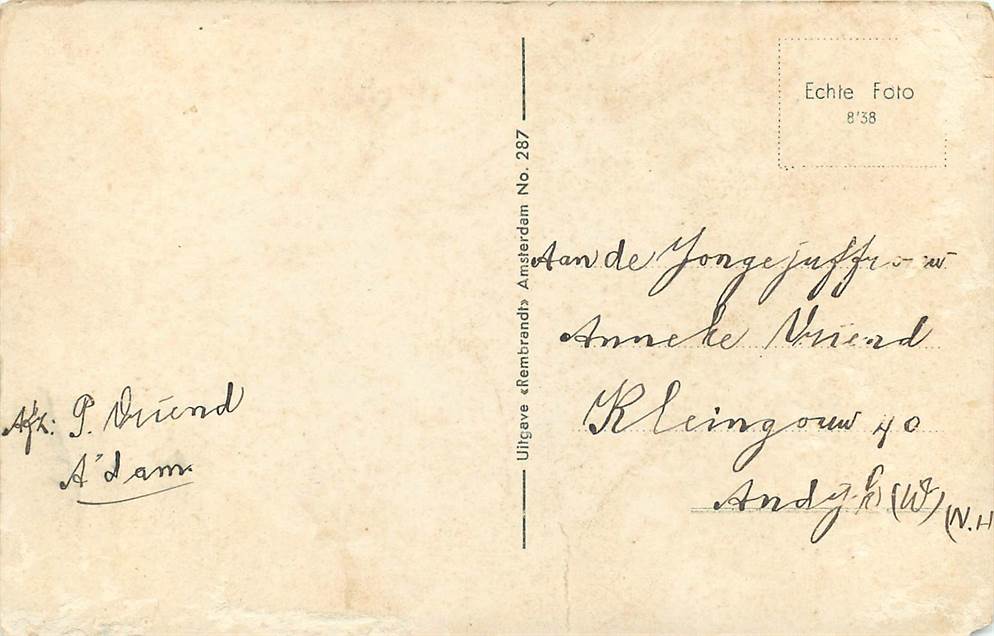 Echte Foto
8'38
Uitgave «Rembrandt» Amsterdam No. 287
Aan de Jongejuffrouw
Anneke Vriend
Kleingouw 40
Andijk (W)
(N.H
Afz: P. Vriend
A'dam.